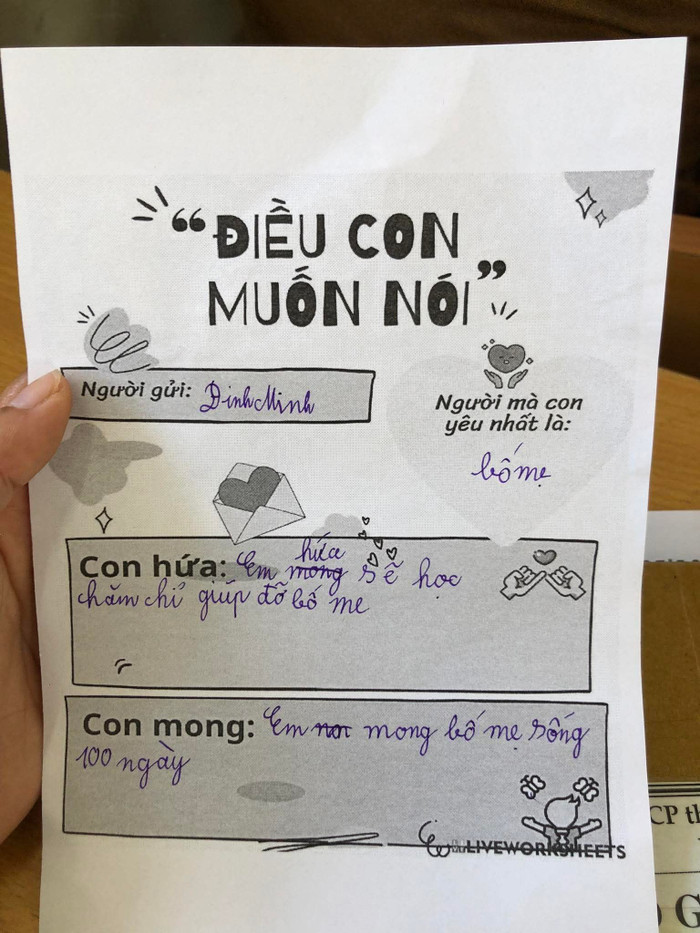 “ĐIỀU CON
MUỐN NÓI”
Người gửi: Đinh Minh
Người mà con
yêu nhất là:
bố mẹ
hứa
Con hứa: Em mong sẽ học
chăm chỉ giúp đỡ bố mẹ
Con mong: Em mong bố mẹ sống
100 ngày
LIVEWORKSHEETS
CP th
G